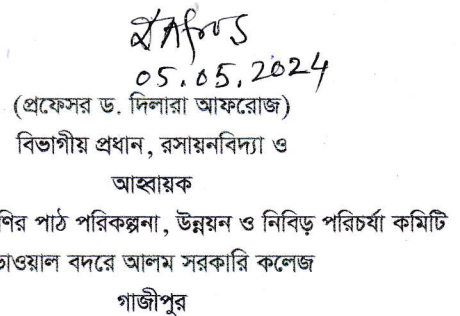 05.05.2024
(প্রফেসর ড. দিলারা আফরোজ)
বিভাগীয় প্রধান, রসায়নবিদ্যা ও
আহ্বায়ক
পাঠ পরিকল্পনা, উন্নয়ন ও নিবিড় পরিচর্যা কমিটি
বদরে আলম সরকারি কলেজ
গাজীপুর